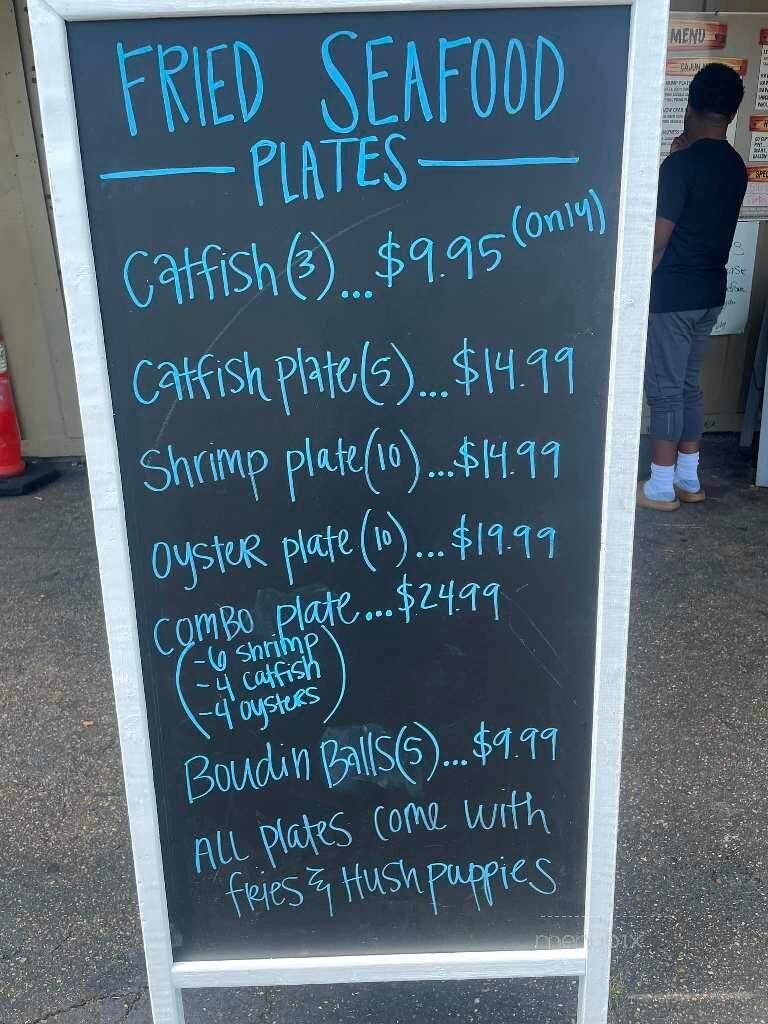 FRIED SEAFOOD
PLATES
Catfish (3)...$9.95 (only)
Catfish plate (5)...$14.99
Shrimp plate (10)...$14.99
oysteR plate (10)...$19.99
comBo plate...$24.99
(-6 shrimp
-4 catfish
-4 oysteRs)
Boudin Balls (5)...$9.99
ALL plates come with
fRies & Hush puppies
MENU
menupix